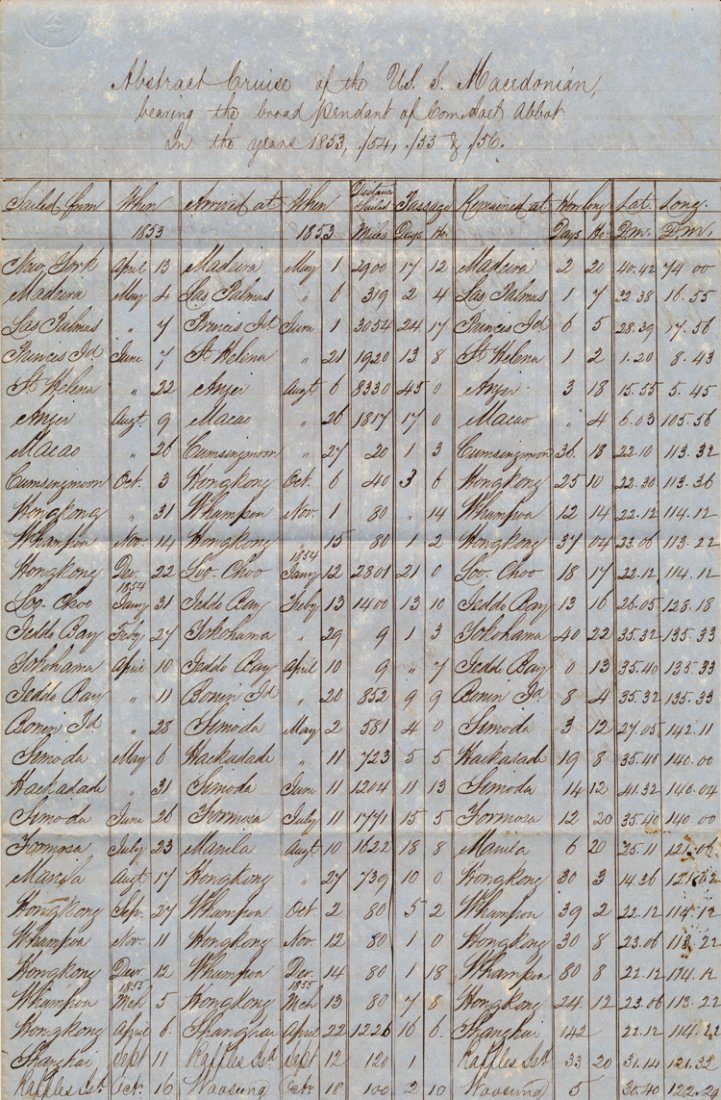 Abstract Cruise of the U.S. S. Macedonian,
bearing the broad pendant of Com. Abbot
In the years 1853, /54, /55 & /56.
Sailed from When Arrived at When Distance Sailed Passage Remained at How long Lat. Long.
1853 1853 Miles Days Ho. Days Ho. D.M. D.M.
New York April 13 Madeira May 1 2900 17 12 Madeira 2 20 40.42 74.00
Madeira May 4 Las Palmas " 6 319 2 4 Las Palmas 1 7 32.38 16.55
Las Palmas " 7 Princes Id June 1 3054 24 17 Princes Id 6 5 28.39 17.56
Princes Id June 7 St Helena " 21 1920 13 8 St Helena 1 2 1.20 8.43
St Helena " 22 Anjer Augt 6 8330 45 0 Anjer 3 18 15.55 5.45
Anjer Augt. 9 Macao " 26 1817 17 0 Macao " 4 6.03 105.56
Macao " 26 Cumsingmoon " 27 20 1 3 Cumsingmoon 36 18 22.10 113.32
Cumsingmoon Oct. 3 Hongkong Oct. 6 40 3 6 Hongkong 25 10 22.30 113.36
Hongkong " 31 Whampoa Nov. 1 80 " 14 Whampoa 12 14 22.12 114.12
Whampoa Nov. 14 Hongkong " 15 80 1 2 Hongkong 37 04 23.06 113.22
1854
Hongkong Dec. 22 Loo-Choo Jany 12 2801 21 0 Loo-Choo 18 17 22.12 114.12
1854
Loo-Choo Jany 31 Jeddo Bay Feby 13 1400 13 10 Jeddo Bay 13 16 26.05 128.18
Jeddo Bay Feby 27 Yokohama " 29 9 1 3 Yokohama 40 22 35.32 135.33
Yokohama April 10 Jeddo Bay April 10 9 " 7 Jeddo Bay 0 13 35.40 135.33
Jeddo Bay " 11 Bonin Id " 20 852 9 9 Bonin Id 8 4 35.32 135.33
Bonin Id " 28 Simoda May 2 581 4 0 Simoda 3 12 27.05 142.11
Simoda May 6 Hackadade " 11 723 5 5 Hackadade 19 8 35.40 140.00
Hackadade " 31 Simoda June 11 1204 11 13 Simoda 14 12 41.32 140.04
Simoda June 26 Formosa July 11 1771 15 5 Formosa 12 20 35.40 140.00
Formosa July 23 Manila Augt 10 1622 18 8 Manila 6 20 25.11 121.06
Manila Augt 17 Hongkong " 27 739 10 0 Hongkong 30 3 14.36
Hongkong Sep. 27 Whampoa Oct. 2 80 5 2 Whampoa 39 2 22.12 114.12
Whampoa Nov. 11 Hongkong Nov. 12 80 1 0 Hongkong 30 8 23.06 113.22
Hongkong Decr. 12 Whampoa Dec. 14 80 1 18 Whampoa 80 8 22.12 114.12
1855 1855
Whampoa Mch 5 Hongkong Mch 13 80 7 8 Hongkong 24 12 23.06 113.22
Hongkong April 6. Shanghai April 22 1226 16 6 Shanghai 142 22.12
Shanghai Sept 11 Raffles Isd Sept 12 120 1 Raffles Isd 33 20 31.14 121.32
Raffles Isd. Oct. 16 Woosung Octr 18 100 2 10 Woosung 5 30.40 122.24